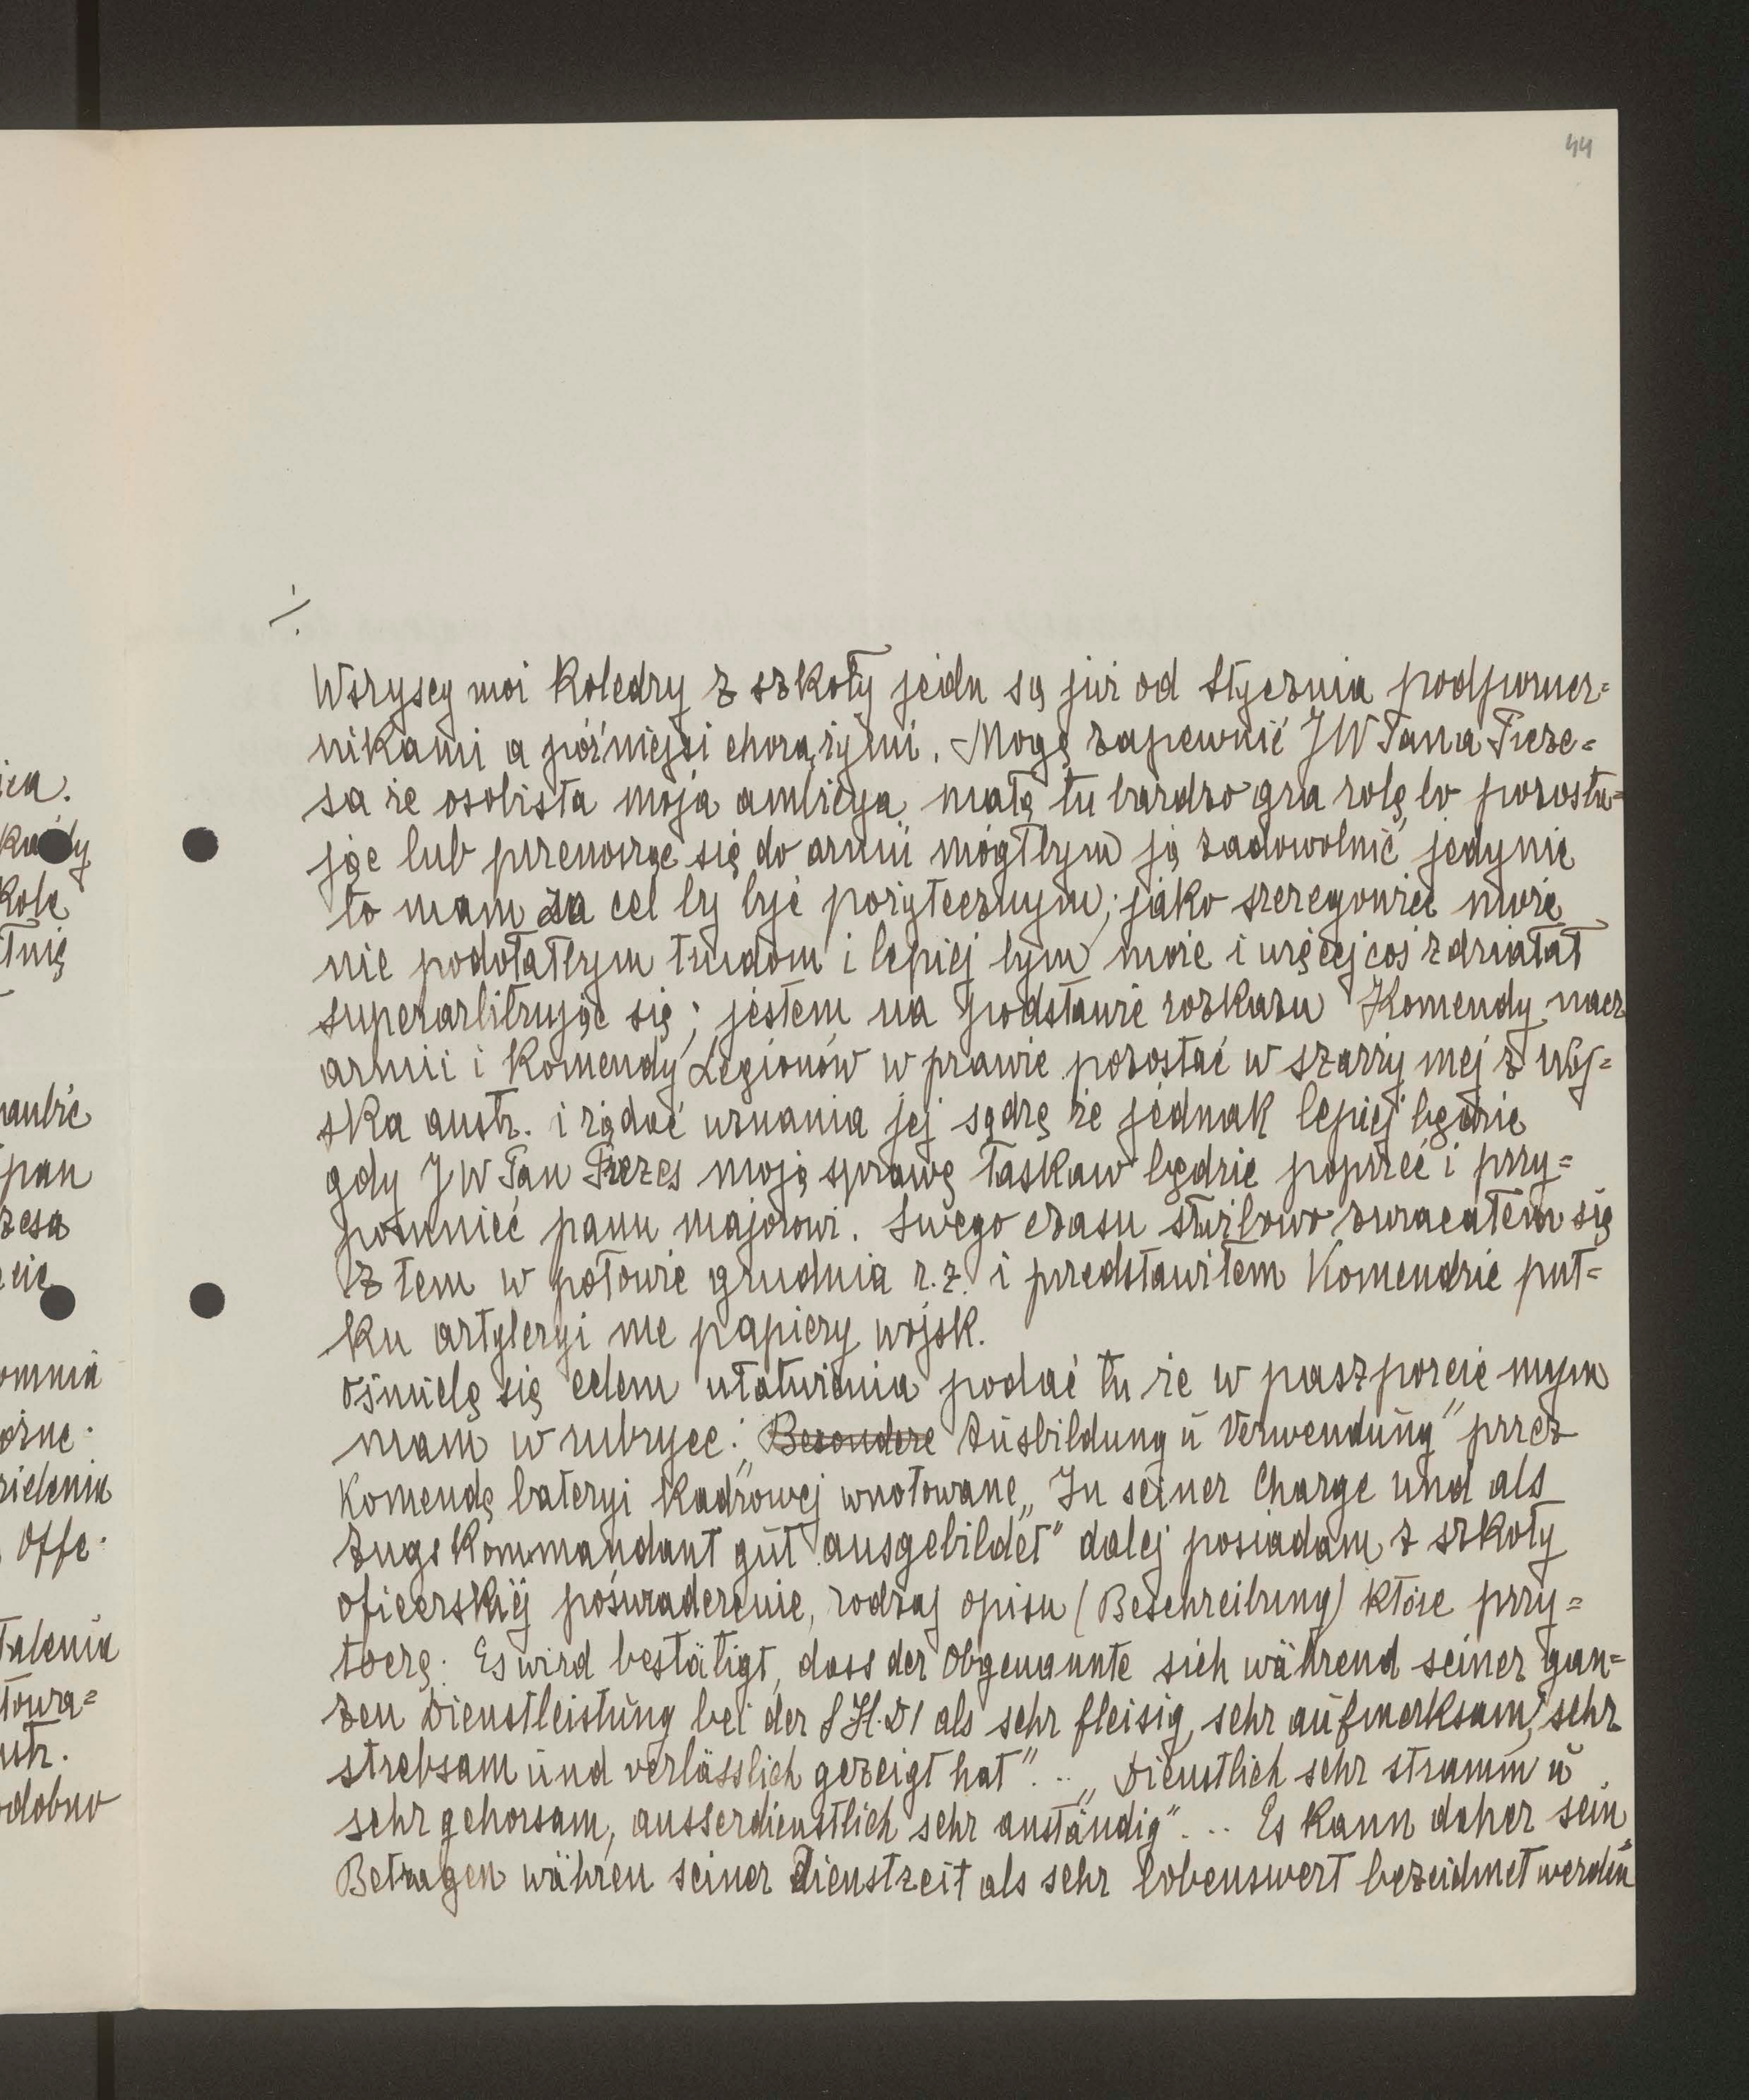 44
./.
Wszyscy moi koledzy z szkoły jedn są już od stycznia podporucz=
nikami a późniejsi chorążymi. Mogę zapewnić JW Pana Preze=
sa że osobista moja ambicya małą tu bardzo gra rolę, bo pozosta=
jąc lub przenosząc się do armii mógłbym ją zadowolnić jedynie
to mam za cel by być pożytecznym; jako szeregowiec może
nie podołałbym trudom i lepiej bym może i więcej coś zdziałał
superarbitrując się; jestem na podstawie rozkazu Komendy nacz
armii i Komendy Legionów w prawie pozostać w szarży mej z woj=
ska austr. i żądać uznania jej sądzę że jednak lepiej będzie
gdy JW Pan Prezes moją sprawę łaskaw będzie poprzeć i przy=
pomnieć panu majorowi. Swego czasu służbowo zwracałem się
z tem w połowie grudnia r. z. i przedstawiłem Komendzie puł=
ku artyleryi me papiery wojsk.
Ośmielę się celem ułatwienia podać tu że w paszporcie mym
mam w rubryce: „Besondere Ausbildung ŭ Verwendŭng" przez
Komendę bateryi kadrowej wnotowane „In seiner Charge ŭnd als
Zugskommandant gŭt ausgebildet" dalej posiadam z szkoły
oficerskiej poświadczenie, rodzaj opisu (Beschreibung) które przy=
toczę: Es wird bestätigt, dass der Obgenannte sich während seiner gan=
zen Dienstleistŭng bei der SH.D1 als sehr fleisig, sehr aŭfmerksam, sehr
strebsam ŭnd verlässlich gezeigt hat"... „Dienstlich sehr stramm ŭ
sehr gehorsam, ausserdienstlich sehr anständig"... Es kann daher sein
Betragen währen seiner Dienstzeit als sehr lobenswert bezeichnet werden